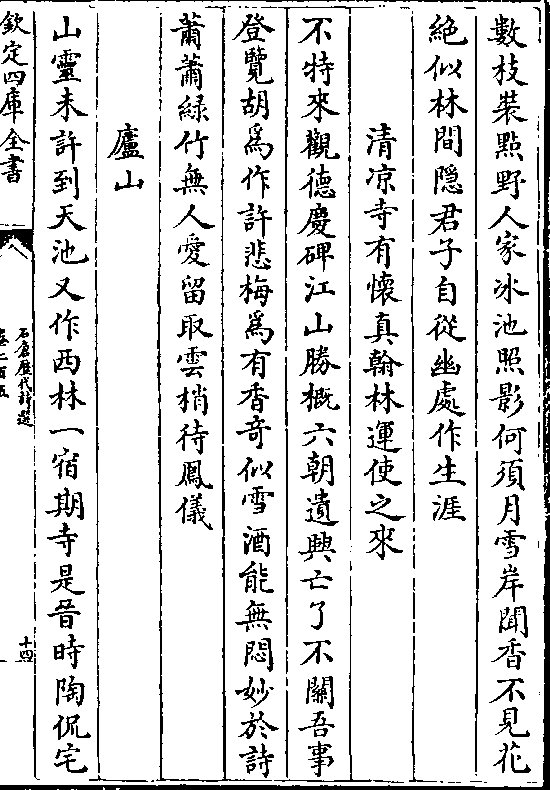 數枝裝㸃野人家冰池照影何須月雪岸聞香不見花
絶似林間隠君子自從幽處作生涯
清凉寺有懷真翰林運使之來
不特來觀德慶碑江山勝概六朝遺興亡了不關吾事
登覽胡為作許悲梅為有香竒似雪酒能無悶妙於詩
蕭蕭緑竹無人愛留取雲梢待鳳儀
廬山
山靈未許到天池又作西林一宿期寺是昔時陶侃宅
欽定四庫全書
石倉歴代詩選
卷二百五
十四